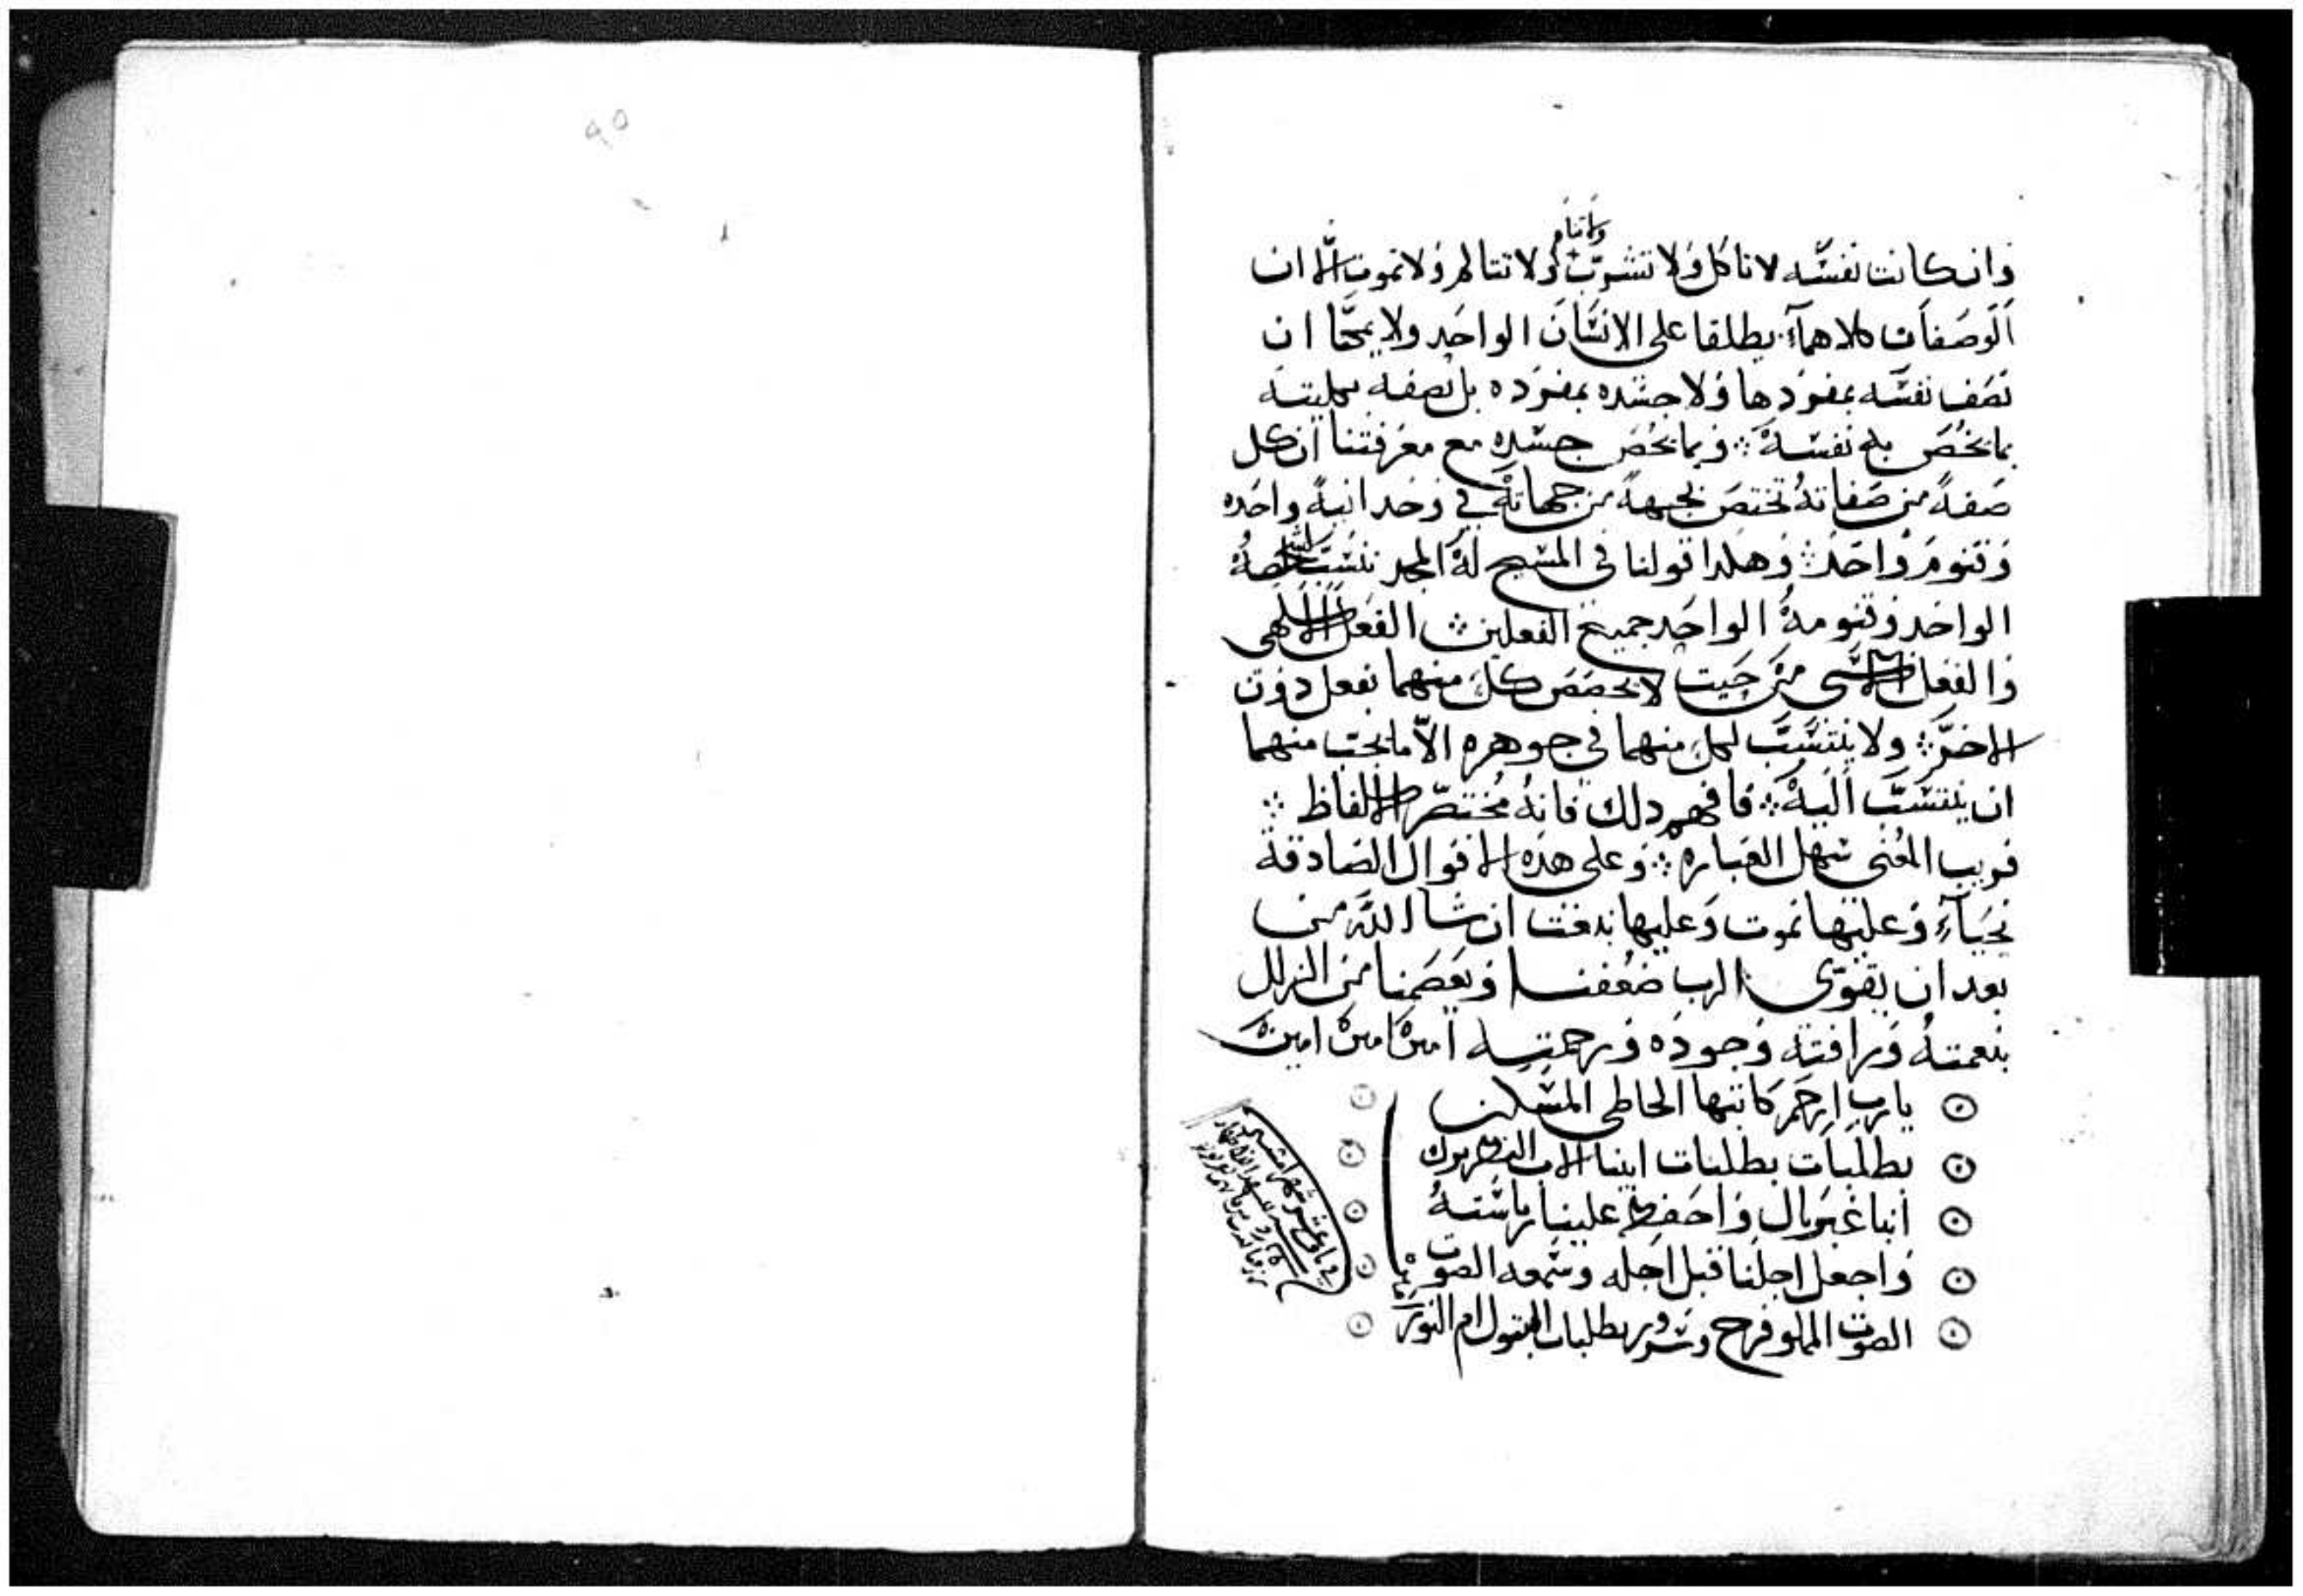 وان كانت نفسه لا تاكل ولا تشرب ولا تنام ولا تتالم ولا تموت الا ان
الوصفات كلاهما يطلقا على الانسان الواحد ولا يمحا ان
نصف نفسه بمفردها ولا جسده بمفرده بل نصفه بكليته
بما يخص به نفسه ⁘ وبما يخص جسده مع معرفتنا ان كل
صفة من صفاته تختص بجهة من جهاته في وحدانية واحده
وقنوم واحد ⁘ وهكدا قولنا في المسيح له المجد ننسب لشخصه
الواحد وقنومه الواحد جميع الفعلين ⁘ الفعل الالهي
والفعل الانسي من حيت لا يخصص كل منهما بفعل دون
الاخر ⁘ ولا ينتسب لكل منهما في جوهره الا ما يجب منهما
ان ينتسب اليه ⁘ فافهم دلك فانه مختصر الالفاظ ⁘
قريب المعنى سهل العباره ⁘ وعلى هذه الاقوال الصادقة
نحيآء وعليها نموت وعليها ندفن ان شا الله من
بعد ان يقوى الرب ضعفنا ويعصمنا من الزلل
بنعمته ورافته وجوده ورحمته امين امين امين
يا رب ارحم كاتبها الخاطى المسكين
بطلبات بطلبات ابينا الاب البطريرك
انبا غبريال واحفظ علينا رياسته
واجعل اجلنا قبل اجله وسمعه الصوت
الصوت المملو فرح وسرور بطلبات البتول ام النور
٩٥